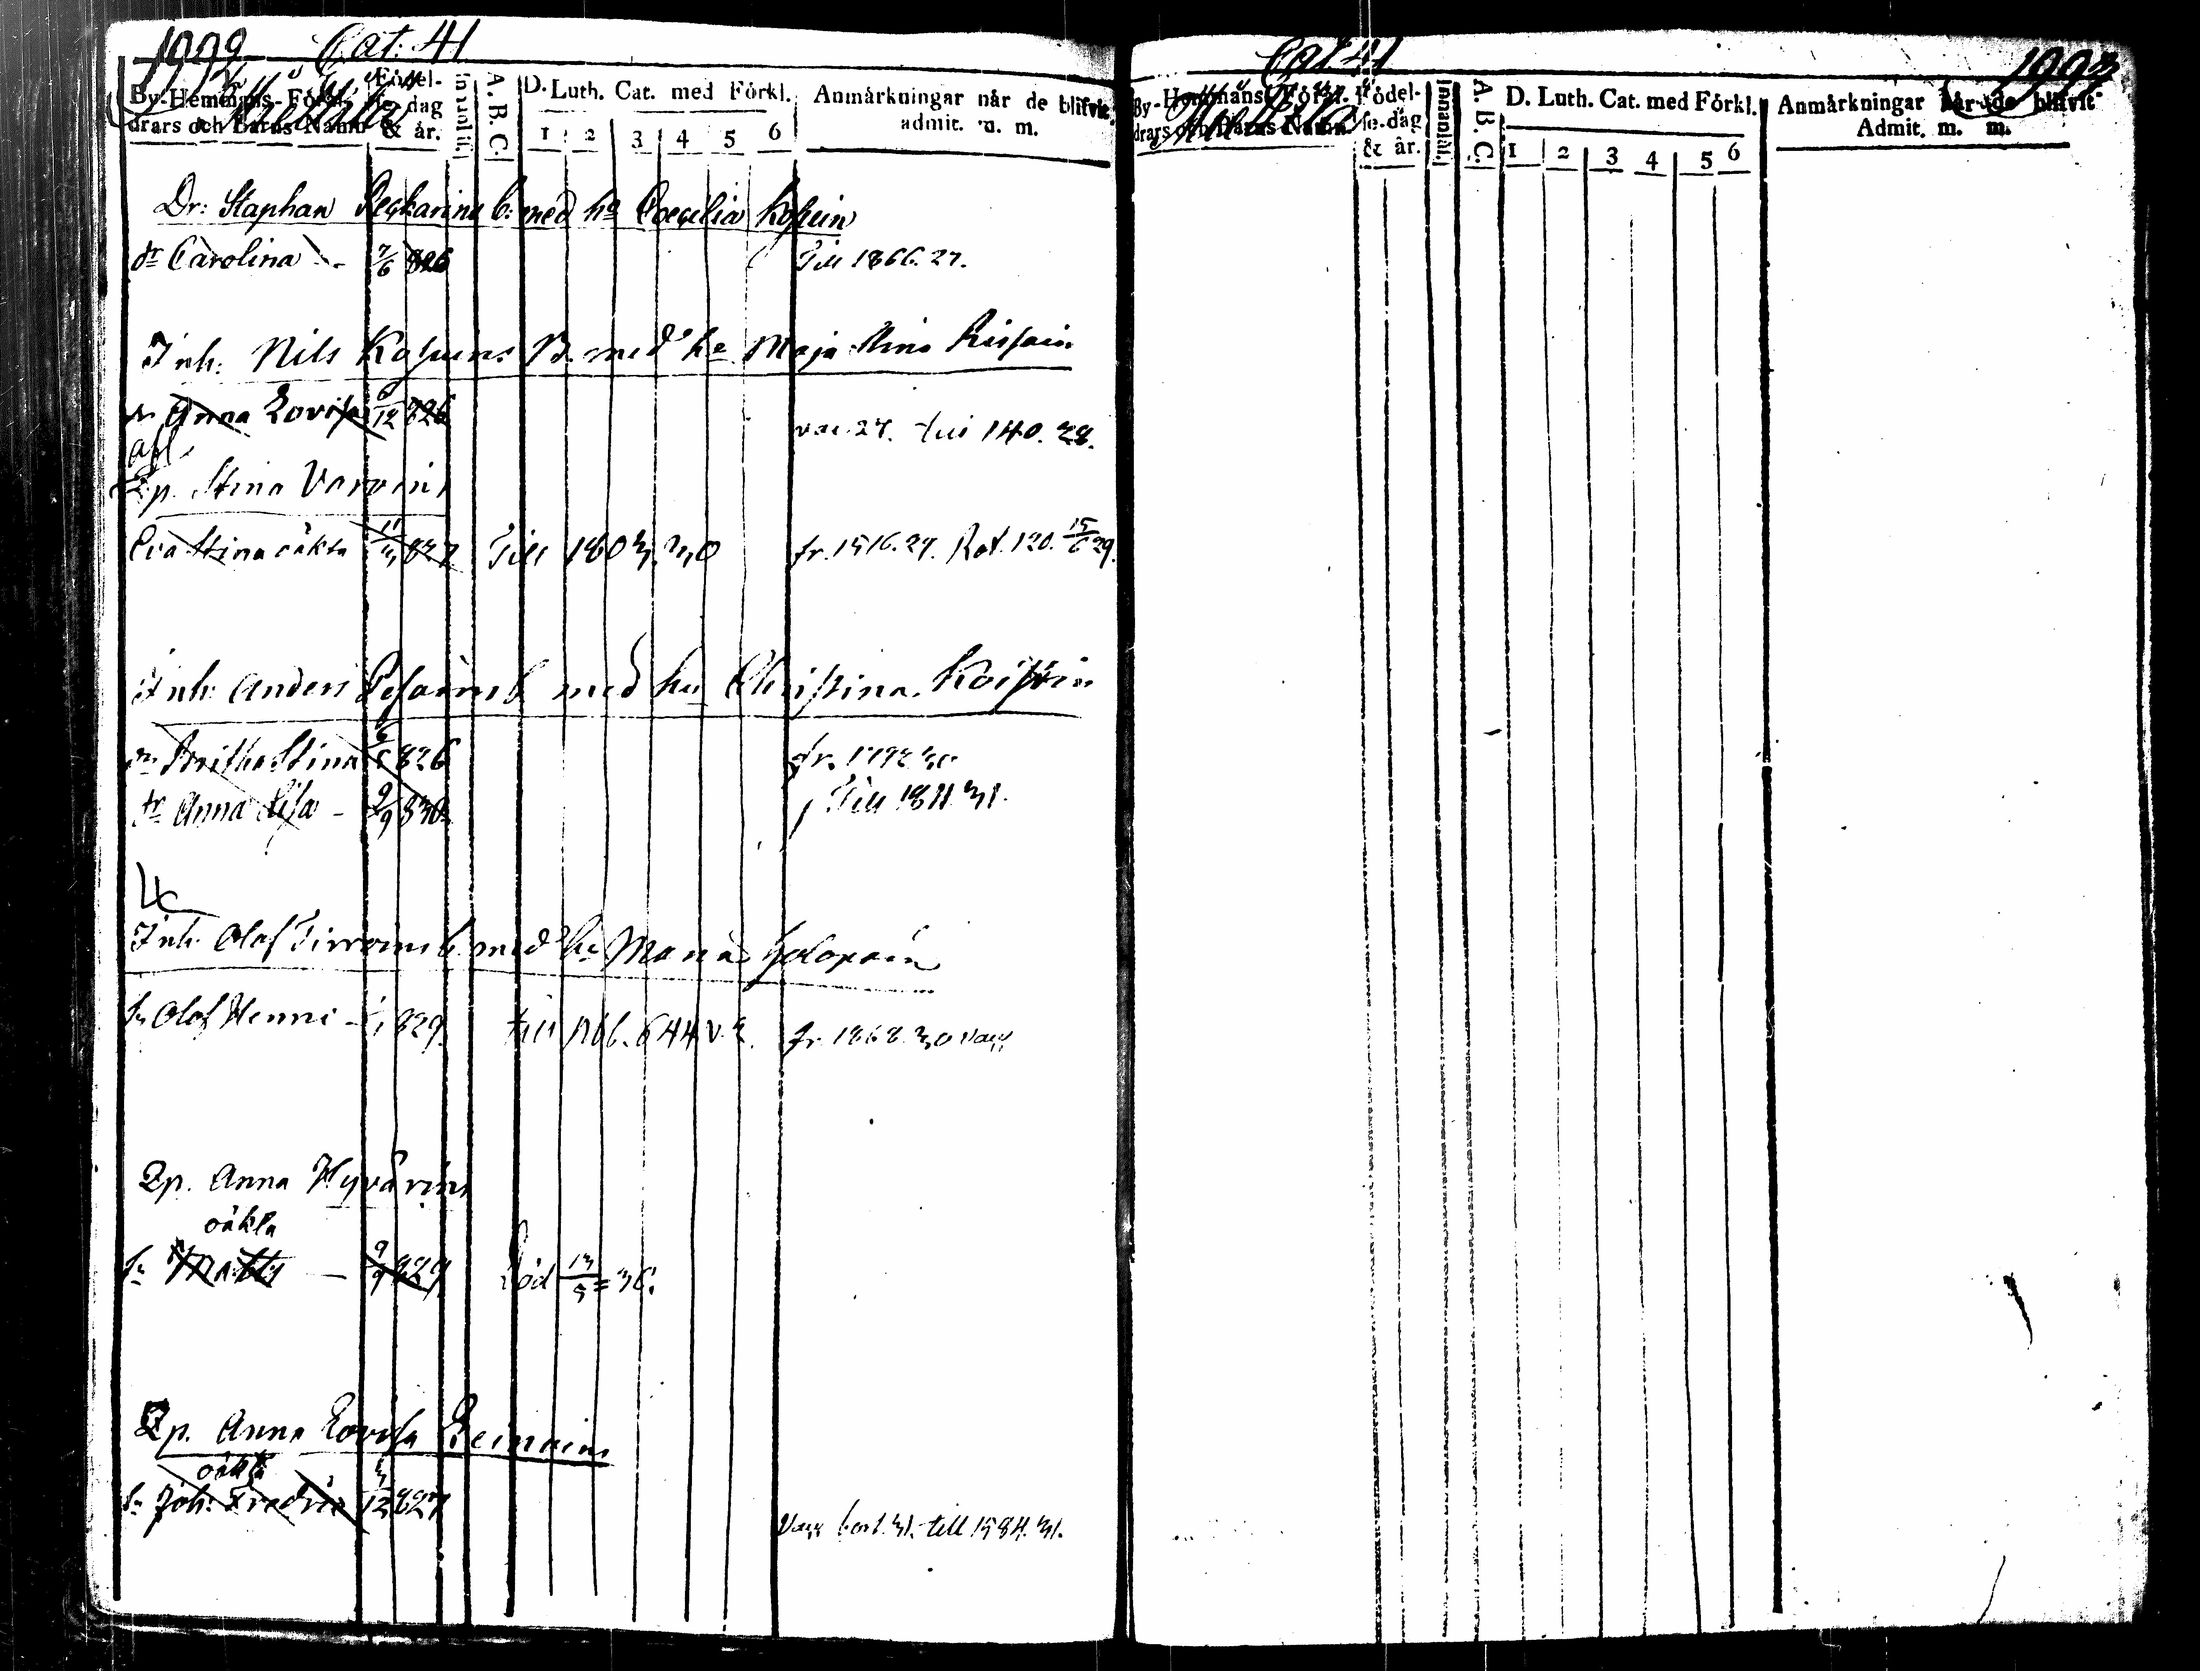 1992 Cat: 41
By-Hemmans-Förel-
drars och Barns Namn
Födel-
se-dag
& år.
Innanläs.
A. B. C.
D. Luth. Cat. med Förkl.
1 2 3 4 5 6
Anmärkningar når de blifvit
admit. m. m.
Dr: Staphan Peckarins b: med ha Coecilia Kosuin
dr Carolina - 7/6 826 Till 1866. 27.
Inh: Nils Kosuins B. med ha Maja Stina Rissain
dr Anna Lovisa 6/12 826 vac. 27. till 140. 28.
afl.
Qp. Stina Varoins
Eva Stina oäkta 11/3 827 Till 1803. 30 fr. 1516. 27. Rot. 120. 15/6 29.
Inh: Anders Pesains b med hu Christina Koistin
dr Britha Stina 6/5 826 fr. 1792 30
dr Anna Lisa - 9/9 830 Till 1811. 31.
Inh. Olof Tirroins b. med hu Maria Holopain
sn Olof Henric - 1/1 829. till 1166. 644 v. 2. fr. 1868. 30 vacc
Qp. Anna Hyvärins
oäkta
sn Matts - 9/9 829 Död 13/5 = 36.
Qp. Anna Lovisa Leinoins
oäkta
sn Joh: Fredric 3/12 827
Vacc bort. 31. till 1584. 31.
Cat 41 1993
By-Hemmans-Förel-
drars och Barns Namn
Födel-
se-dag
& år.
Innanläs.
A. B. C.
D. Luth. Cat. med Förkl.
1 2 3 4 5 6
Anmärkningar når de blifvit
Admit. m. m.